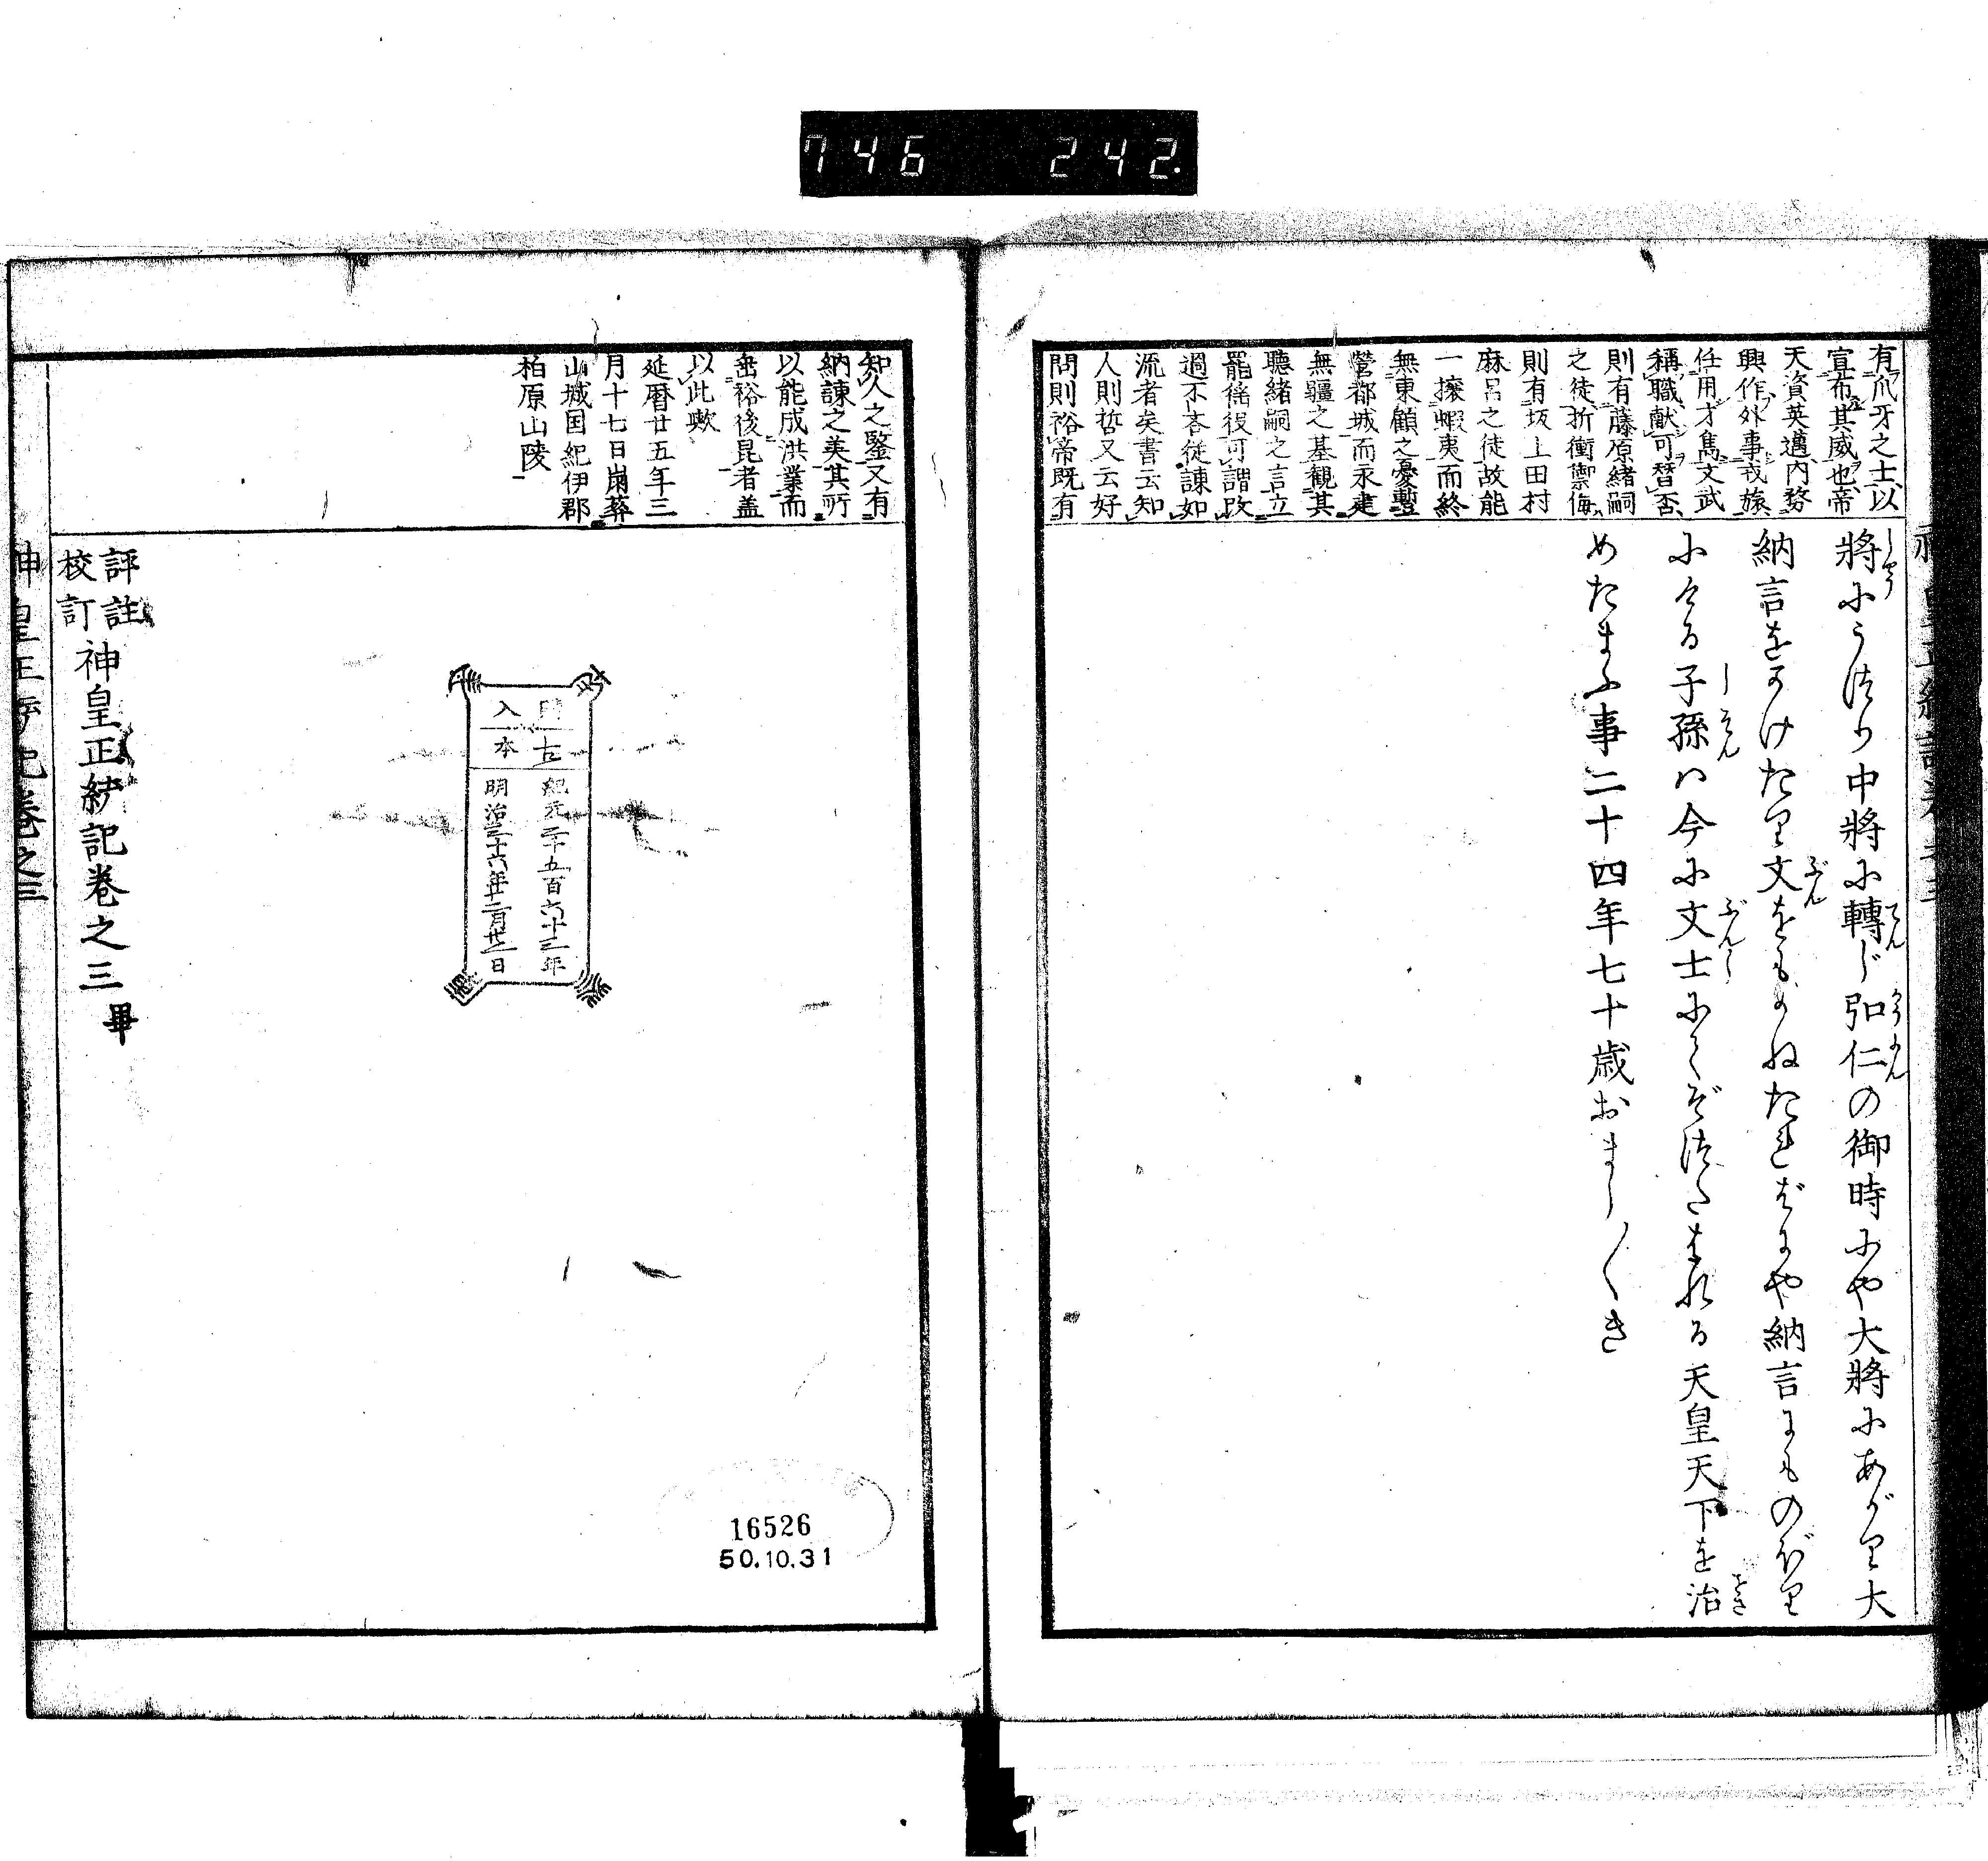 746 242.
有爪牙之士以
宣布其威也帝
天資英邁内務
興作外事戎旅
任用才雋文武
稱職獻可替否
則有藤原緒嗣
之徒折衝禦侮
則有坂上田村
麻呂之徒故能
一攘蝦夷而終
無東顧之憂蹔
營都城而永建
無疆之基觀其
聽緒嗣之言立
罷徭役可謂改
過不吝從諫如
流者矣書云知
人則哲又云好
問則裕帝既有
將にうつり中將に轉じ弘仁の御時にや大將にあがり大
納言をかけたり文をもかねたればにや納言にものぼり
にける子孫ハ今に文士にてぞつたはれる天皇天下を治
めたまふ事二十四年七十歳おまし〱き
知人之鑒又有
納諫之美其所
以能成洪業而
垂裕後昆者蓋
以此歟
延暦廿五年三
月十七日崩葬
山城国紀伊郡
柏原山陵
入本
紀元二千五百六十三年
明治三十六年十二月廿二日
16526
50.10.31
評註
校訂
神皇正統記卷之三 畢
神皇正統記卷之三